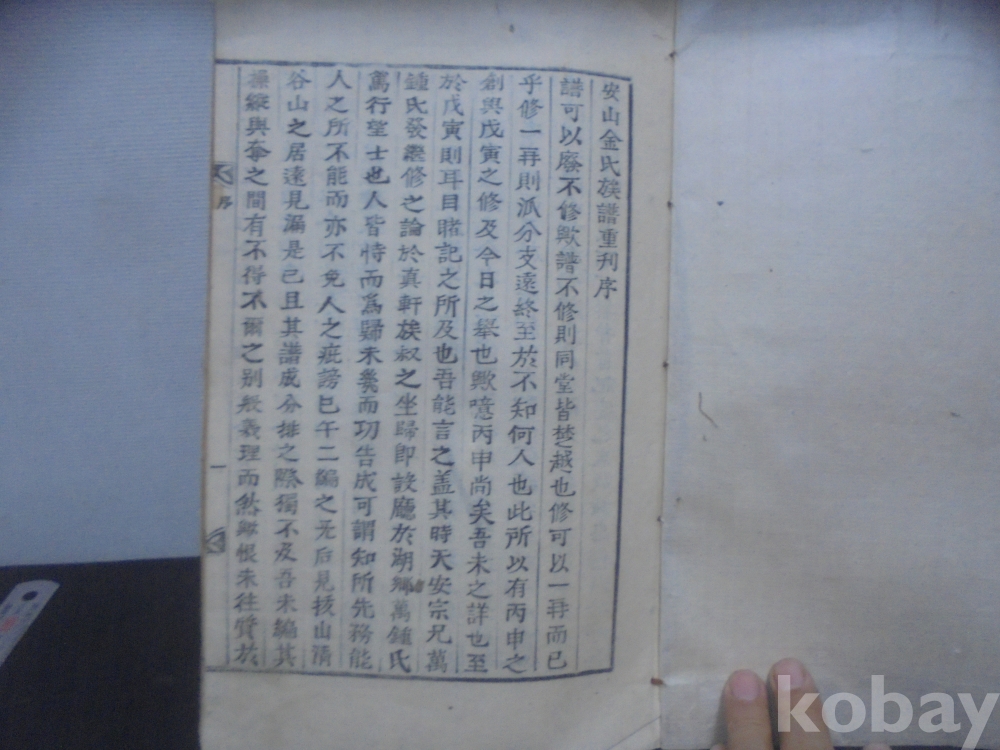 安山金氏族譜重刊序
譜可以廢不修歟譜不修則同堂皆楚越也修可以一再而已
乎修一再則派分支遠終至於不知何人也此所以有丙申之
創與戊寅之修及今日之舉也歟噫丙申尚矣吾未之詳也至
於戊寅則耳目睹記之所及也吾能言之盖其時天安宗兄萬
鍾氏發繼修之論於真軒族叔之坐歸即設廳於湖鄉萬鍾氏
篤行望士也人皆恃而爲歸未幾而功告成可謂知所先務能
人之所不能而亦不免人之疵謗巳午二編之无后見拔山清
谷山之居遠見漏是已且其譜成分排之際獨不及吾未編其
操縱與奪之間有不得不爾之别般義理而然歟恨未往質於
序
一
kobay